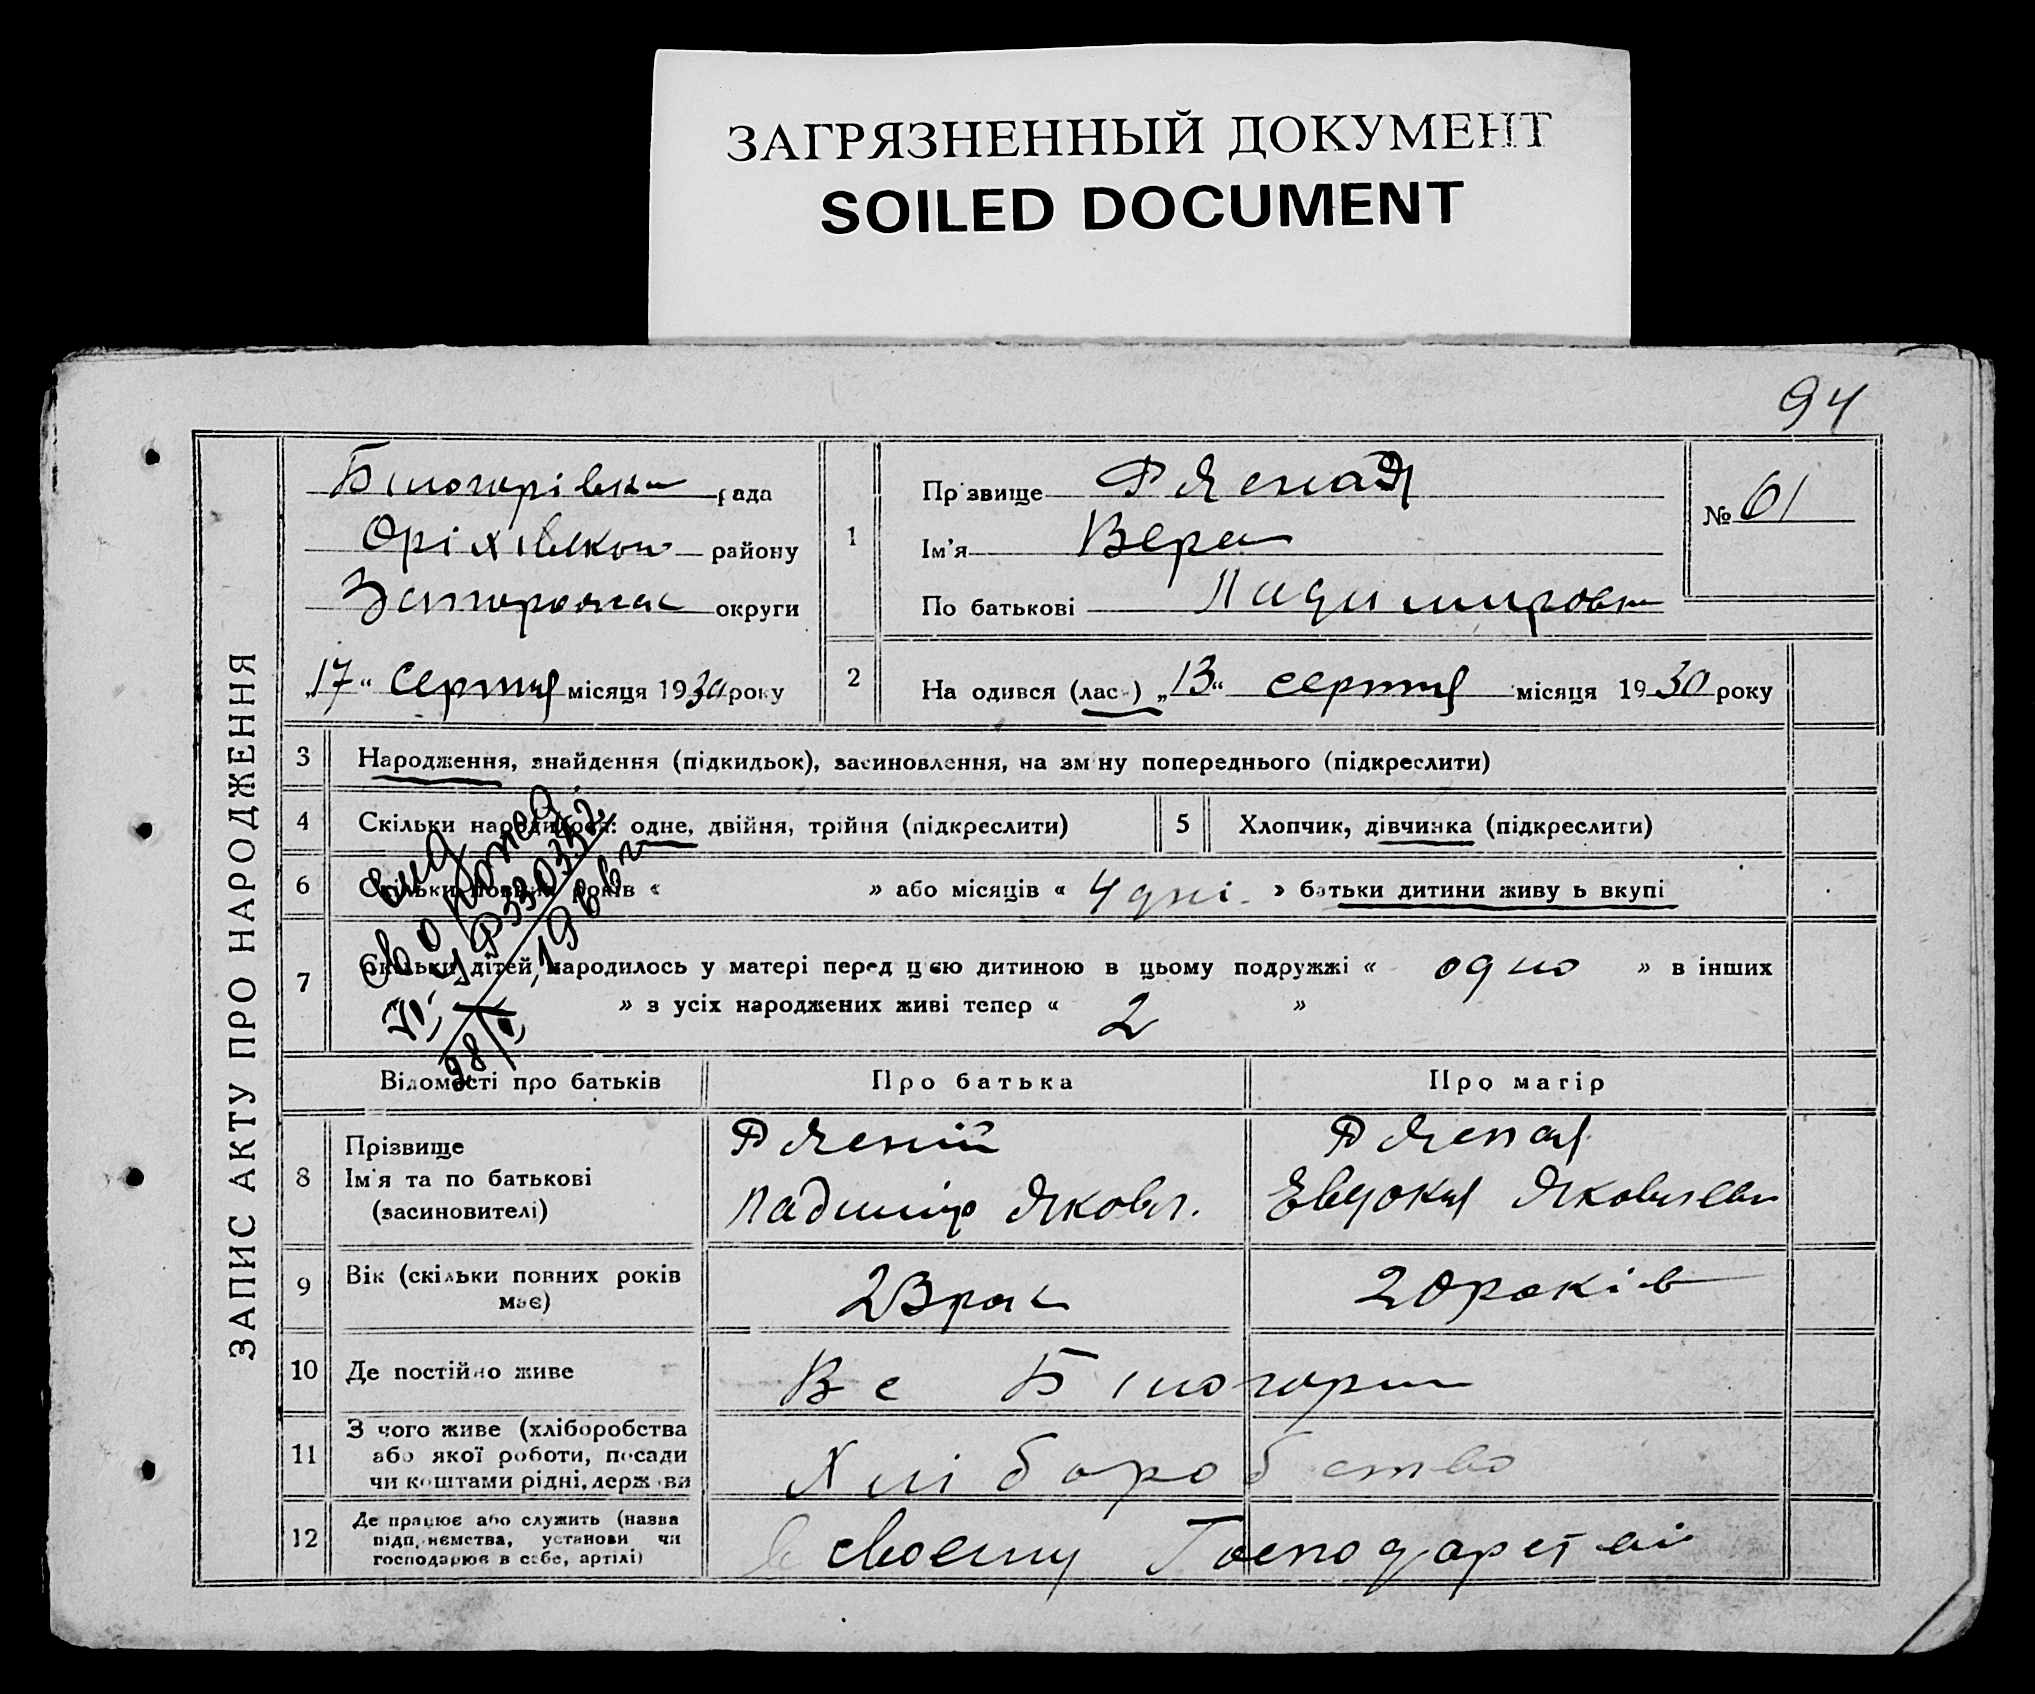 ЗАГРЯЗНЕННЫЙ ДОКУМЕНТ
SOILED DOCUMENT
94
ЗАПИС АКТУ ПРО НАРОДЖЕННЯ
Білогорівка рада
Оріхівськой району
Запорожжя округи
„17“ серпня місяця 1930 року
1
Прізвище
Ім'я Вера
По батькові Ладимировн
№ 61
2
На одився (лас.) „13“ серпня місяця 1930 року
3 Народження, знайдення (підкидьок), засиновлення, на зміну попереднього (підкреслити)
4 Скільки народилося: одне, двійня, трійня (підкреслити)
5 Хлопчик, дівчинка (підкреслити)
6 Скільки повних років « » або місяців « 4 дні » батьки дитини живуть вкупі
7 Скільки дітей народилось у матері перед цією дитиною в цьому подружжі « одно » в інших
» з усіх народжених живі тепер « 2 »
Відомості про батьків
Про батька
Про матір
8 Прізвище
Ім'я та по батькові
(засиновителі)
Ладимір Яковл.
Евдокия Яковлевн
9 Вік (скільки повних років має)
23 рок
20 років
10 Де постійно живе
В с Білогорки
11 З чого живе (хліборобства
або якої роботи, посади
чи коштами рідні, держави
Хліборобство
12 Де працює або служить (назва
підприємства, установи чи
господарює в себе, артілі)
в своєму Господарстві